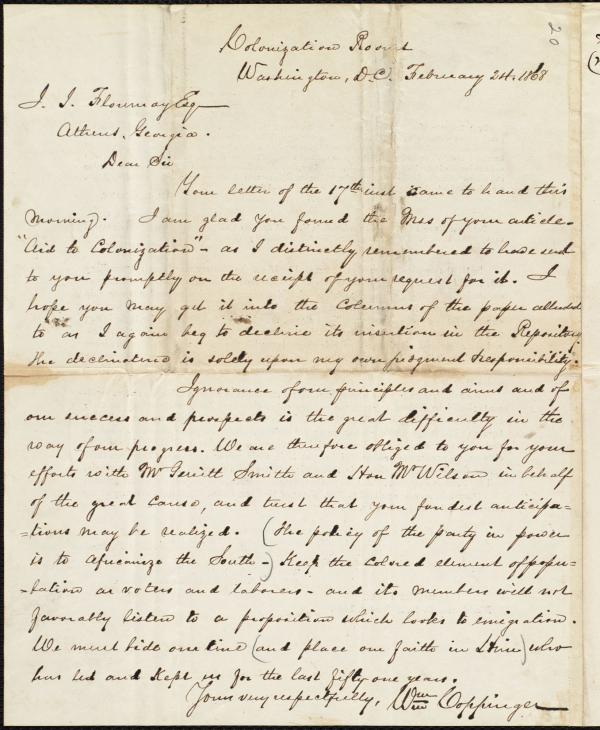 20
Colonization Rooms
Washington, D.C. February 24. 1868
J. J. Flournoy Esq
Athens, Georgia.
Dear Sir
Your letter of the 17th inst came to hand this
morning. I am glad you found the Mss of your article-
"Aid to Colonization" - as I distinctly remembered to have sent
to you promptly on the receipt of your request for it. I
hope you may get it into the Columns of the paper alluded
to as I again beg to decline its insertion in the Repository
The declination is solely upon my own judgment & responsibility.
Ignorance of our principles and aims and of
our success and prospects is the great difficulty in the
way of our progress. We are therefore obliged to you for your
efforts with Mr Gerritt Smith and Hon Mr Wilson in behalf
of the great cause, and trust that your fondest anticipa-
-tions may be realized. (The policy of the party in power
is to Africanize the South -) Keep the colored element of popu-
-lation as voters and laborers - and its members will not
favorably listen to a proposition which looks to emigration.
We must bide our time (and place our faith in Him) who
has led and kept us for the last fifty one years.
Yours very respectfully, Wm Coppinger